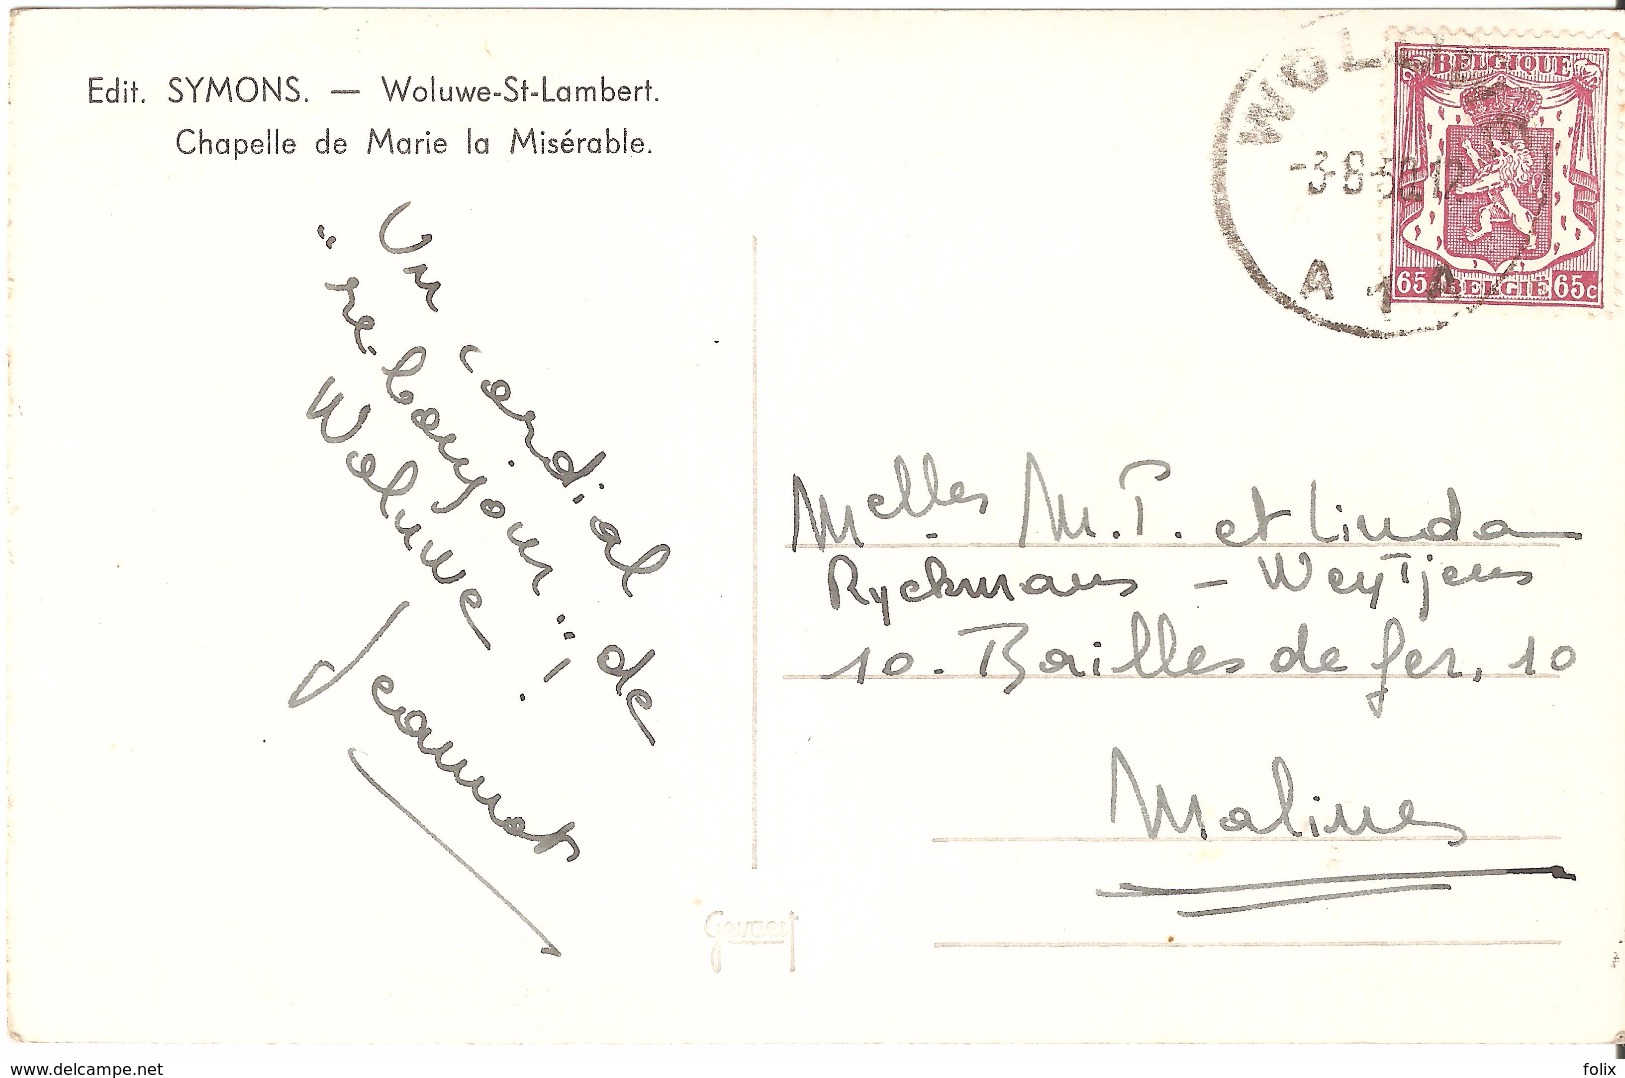 Edit. SYMONS. — Woluwe-St-Lambert.
Chapelle de Marie la Misérable.
BELGIQUE
-3-8-5 12
A 1 A
65 BELGIË 65c
Un cordial
"re-bonjour"! de
Woluwe.
Jeannot
Melles M.T. et Linda
Ryckmans - Weytjens
10. Bailles de fer, 10
Malines
Gevaert
www.delcampe.net
folix